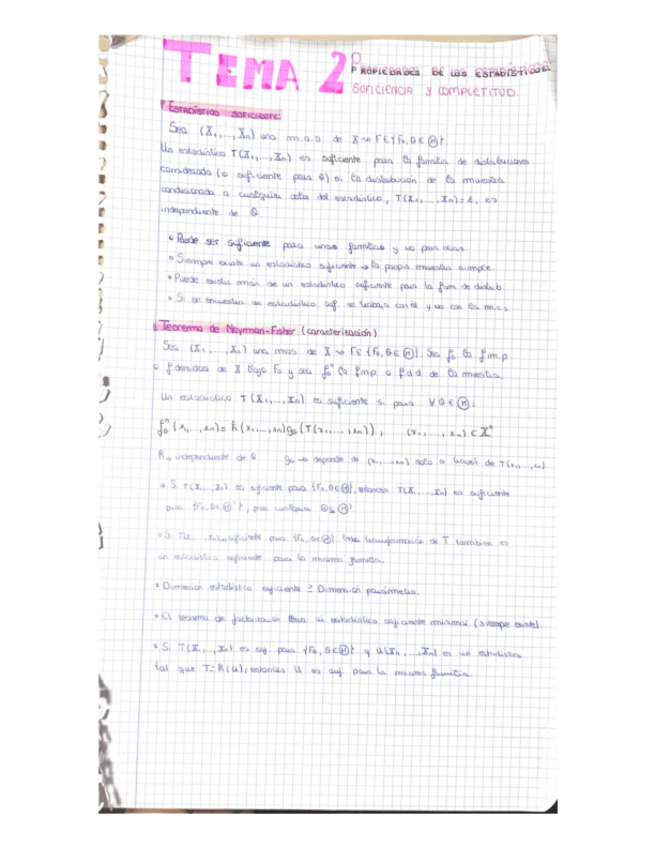 TEMA 2
PROPIEDADES DE LOS ESTADÍSTICOS
SUFICIENCIA Y COMPLETITUD.
Estadístico suficiente:
Sea (X₁,..., Xₙ) una m.a.s de X ~> F ∈ {Fθ, θ ∈ Ⓗ}.
Un estadístico T(X₁,..., Xₙ) es suficiente para la familia de distribuciones
considerada (o suficiente para θ) si la distribución de la muestra
condicionada a cualquier valor del estadístico, T(X₁,..., Xₙ)=t, es
independiente de θ
• Puede ser suficiente para unas familias y no para otras
• Siempre existe un estadístico suficiente → la propia muestra simple
• Puede existir más de un estadístico suficiente para la fam de distrib.
• Si se encuentra un estadístico suf. se trabaja con él y no con la m.a.s
Teorema de Neyman-Fisher (caracterización)
Sea (X₁,..., Xₙ) una mas de X ~> F ∈ {Fθ, θ ∈ Ⓗ}. Sea fθ la f.m.p
o f densidad de X bajo Fθ y sea fθⁿ la fmp o fdd de la muestra.
Un estadístico T(X₁,..., Xₙ) es suficiente si para ∀θ ∈ Ⓗ:
fθⁿ(x₁,..., xₙ) = h(x₁,..., xₙ)gθ(T(x₁,..., xₙ)), (x₁,..., xₙ) ∈ Xⁿ
h → independiente de θ gθ → depende de (x₁,..., xₙ) solo a través de T(x₁,..., xₙ)
• Si T(X₁,..., Xₙ) es suficiente para {Fθ, θ ∈ Ⓗ}, entonces T(X₁,..., Xₙ) es suficiente
para {Fθ, θ ∈ Ⓗ'}, para cualquier
• Si suficiente para {Fθ, θ ∈ Ⓗ} transformación de T también es
un estadístico suficiente para la misma familia.
• Dimensión estadístico suficiente ≥ Dimensión parámetro.
• El teorema de factorización lleva al estadístico suficiente minimal (siempre existe)
• Si T(X₁,..., Xₙ) es suf. para {Fθ, θ ∈ Ⓗ} y U(X₁,..., Xₙ) es un estadístico
tal que T = h(U), entonces U es suf. para la misma familia.